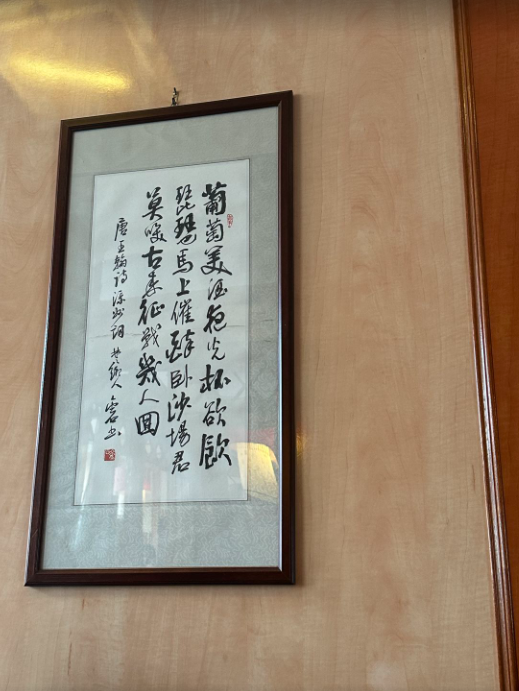 葡萄美酒夜光杯欲飲
琵琶馬上催醉臥沙場君
莫咲古來征戰幾人回
唐王翰詩涼州詞楚鄉人書